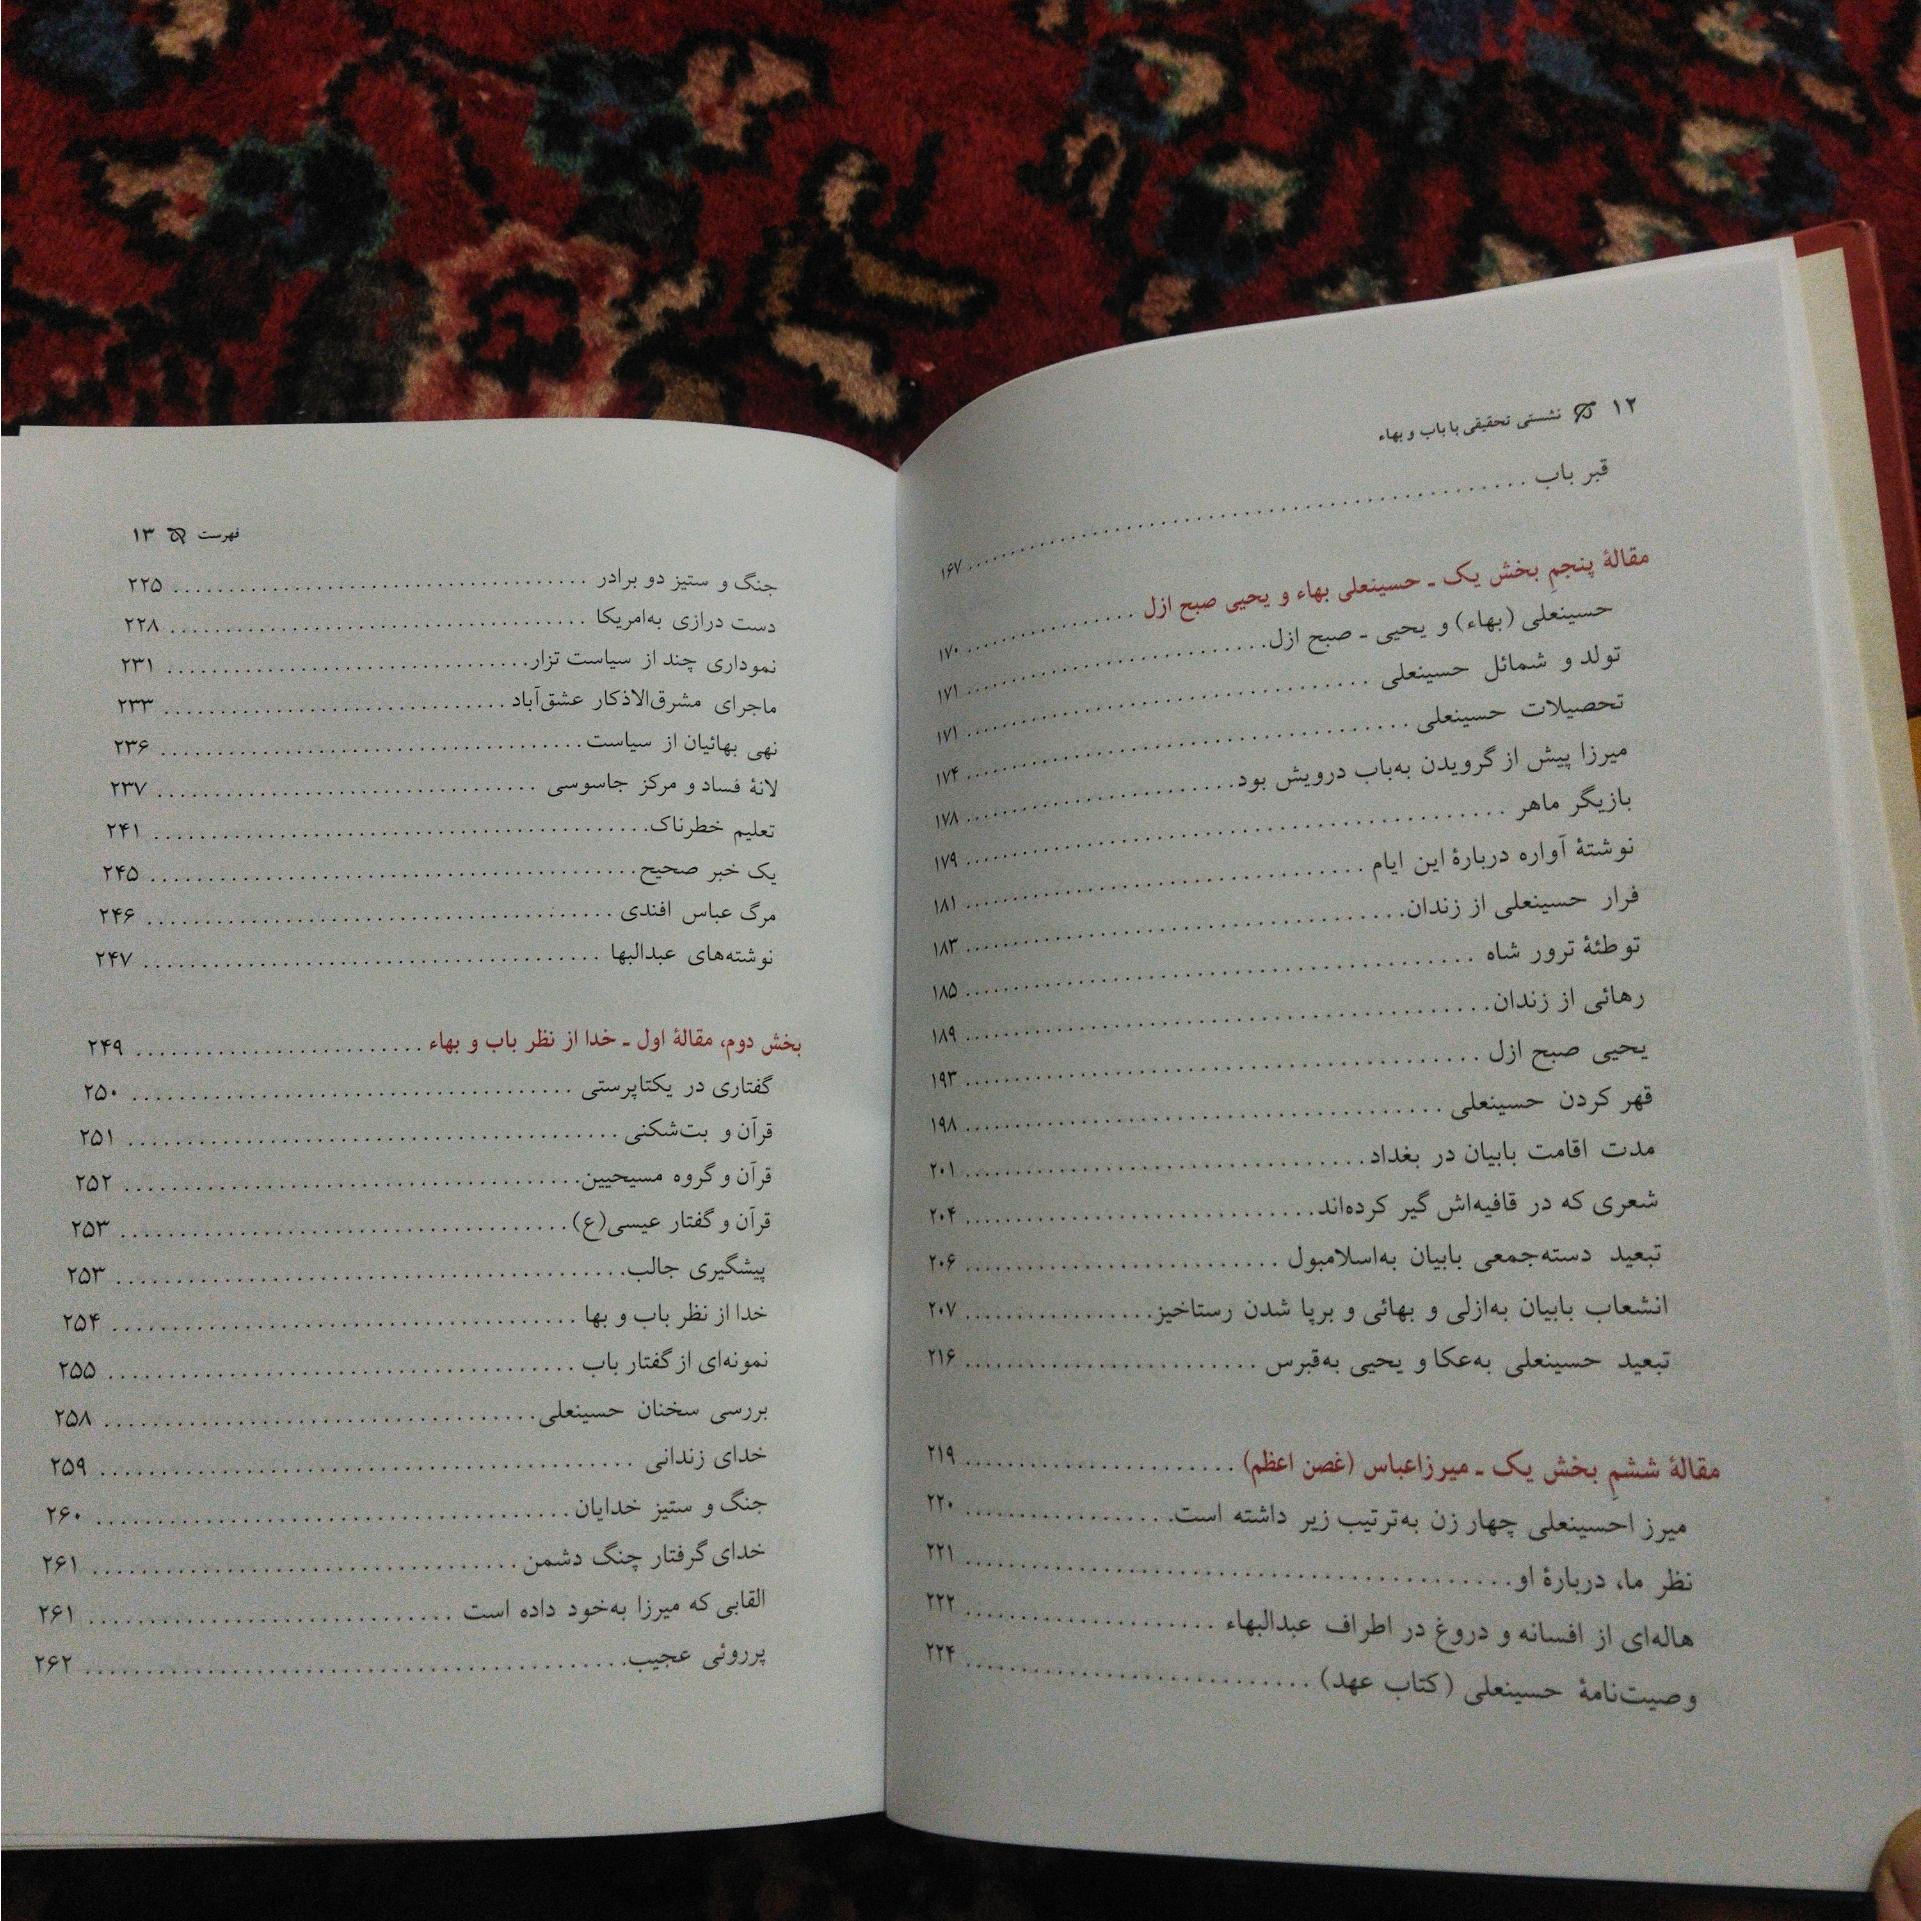 ۱۲ نشستی تحقیقی با باب و بهاء
قبر باب ........ ۱۶۷
مقالهٔ پنجمِ بخش یک ـ حسینعلی بهاء و یحیی صبح ازل ........ ۱۷۰
حسینعلی (بهاء) و یحیی ـ صبح ازل ........ ۱۷۱
تولد و شمائل حسینعلی ........ ۱۷۱
تحصیلات حسینعلی ........ ۱۷۴
میرزا پیش از گرویدن به‌باب درویش بود ........ ۱۷۸
بازیگر ماهر ........ ۱۷۹
نوشتهٔ آواره دربارهٔ این ایام ........ ۱۸۱
فرار حسینعلی از زندان ........ ۱۸۳
توطئهٔ ترور شاه ........ ۱۸۵
رهائی از زندان ........ ۱۸۹
یحیی صبح ازل ........ ۱۹۳
قهر کردن حسینعلی ........ ۱۹۸
مدت اقامت بابیان در بغداد ........ ۲۰۱
شعری که در قافیه‌اش گیر کرده‌اند ........ ۲۰۴
تبعید دسته‌جمعی بابیان به‌اسلامبول ........ ۲۰۶
انشعاب بابیان به‌ازلی و بهائی و برپا شدن رستاخیز ........ ۲۰۷
تبعید حسینعلی به‌عکا و یحیی به‌قبرس ........ ۲۱۶
مقالهٔ ششمِ بخش یک ـ میرزاعباس (غصن اعظم) ........ ۲۱۹
میرز احسینعلی چهار زن به‌ترتیب زیر داشته است ........ ۲۲۰
نظر ما، دربارهٔ او ........ ۲۲۱
هاله‌ای از افسانه و دروغ در اطراف عبدالبهاء ........ ۲۲۲
وصیت‌نامهٔ حسینعلی (کتاب عهد) ........ ۲۲۴
فهرست ۱۳
جنگ و ستیز دو برادر ........ ۲۲۵
دست درازی به‌امریکا ........ ۲۲۸
نموداری چند از سیاست تزار ........ ۲۳۱
ماجرای مشرق‌الاذکار عشق‌آباد ........ ۲۳۳
نهی بهائیان از سیاست ........ ۲۳۶
لانهٔ فساد و مرکز جاسوسی ........ ۲۳۷
تعلیم خطرناک ........ ۲۴۱
یک خبر صحیح ........ ۲۴۵
مرگ عباس افندی ........ ۲۴۶
نوشته‌های عبدالبها ........ ۲۴۷
بخش دوم، مقالهٔ اول ـ خدا از نظر باب و بهاء ........ ۲۴۹
گفتاری در یکتاپرستی ........ ۲۵۰
قرآن و بت‌شکنی ........ ۲۵۱
قرآن و گروه مسیحیین ........ ۲۵۲
قرآن و گفتار عیسی(ع) ........ ۲۵۳
پیشگیری جالب ........ ۲۵۳
خدا از نظر باب و بها ........ ۲۵۴
نمونه‌ای از گفتار باب ........ ۲۵۵
بررسی سخنان حسینعلی ........ ۲۵۸
خدای زندانی ........ ۲۵۹
جنگ و ستیز خدایان ........ ۲۶۰
خدای گرفتار چنگ دشمن ........ ۲۶۱
القابی که میرزا به‌خود داده است ........ ۲۶۱
پرروئی عجیب ........ ۲۶۲